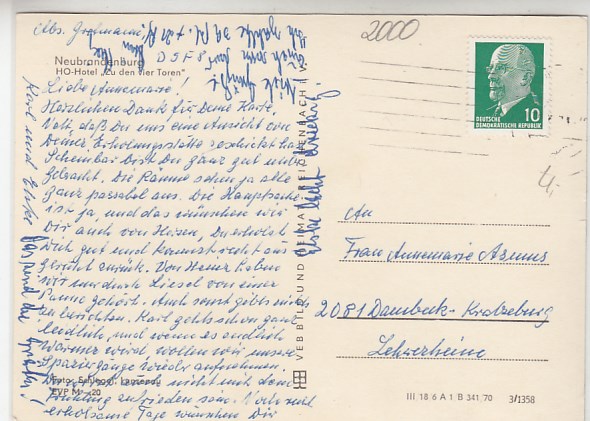 Abs. Großmann,
2000
Neubrandenburg
HO-Hotel „Zu den vier Toren"
Liebe Annemarie!
Herzlichen Dank für Deine Karte.
Nett, daß Du uns eine Ansicht von
Deiner Erholungsstätte geschickt hast
Scheinbar bist Du ganz gut unter-
gebracht. Die Räume sehen ja alle
ganz passabel aus. Die Hauptsache
ist ja, und das wünschen wir
Dir auch von Herzen, Du erholst
Dich gut und kommst recht aus-
geruht zurück. Von Heinz haben
wir nur durch Liesel von einer
Panne gehört. Auch sonst gibt's nichts
zu berichten. Karl geht's schon ganz
leidlich, und wenn es endlich
wärmer wird, wollen wir unsere
Spaziergänge wieder aufnehmen.
nicht mit dem
Frühling zufrieden sein. Noch viel
erholsame Tage wünschen Dir
Karl und
Foto: Schlegel, Lumenau
EVP M -,20
VEB BILD UND HEIMAT REICHENBACH i. V.
10
DEUTSCHE
DEMOKRATISCHE REPUBLIK
4,-
An
Frau Annemarie Asmus
2081 Dambeck-Kratzeburg
Lehrerheim
III 18 6 A 1 B 341/70 3/1358